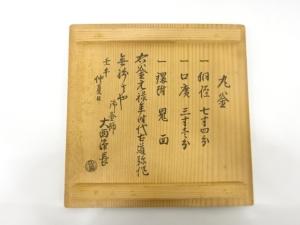 丸釜
一 胴径 七寸四分
一 口廣 三寸
一 環附 鬼面
右釜元禄年時代古道弥作
無
御釜師
仲夏日
大西浄長